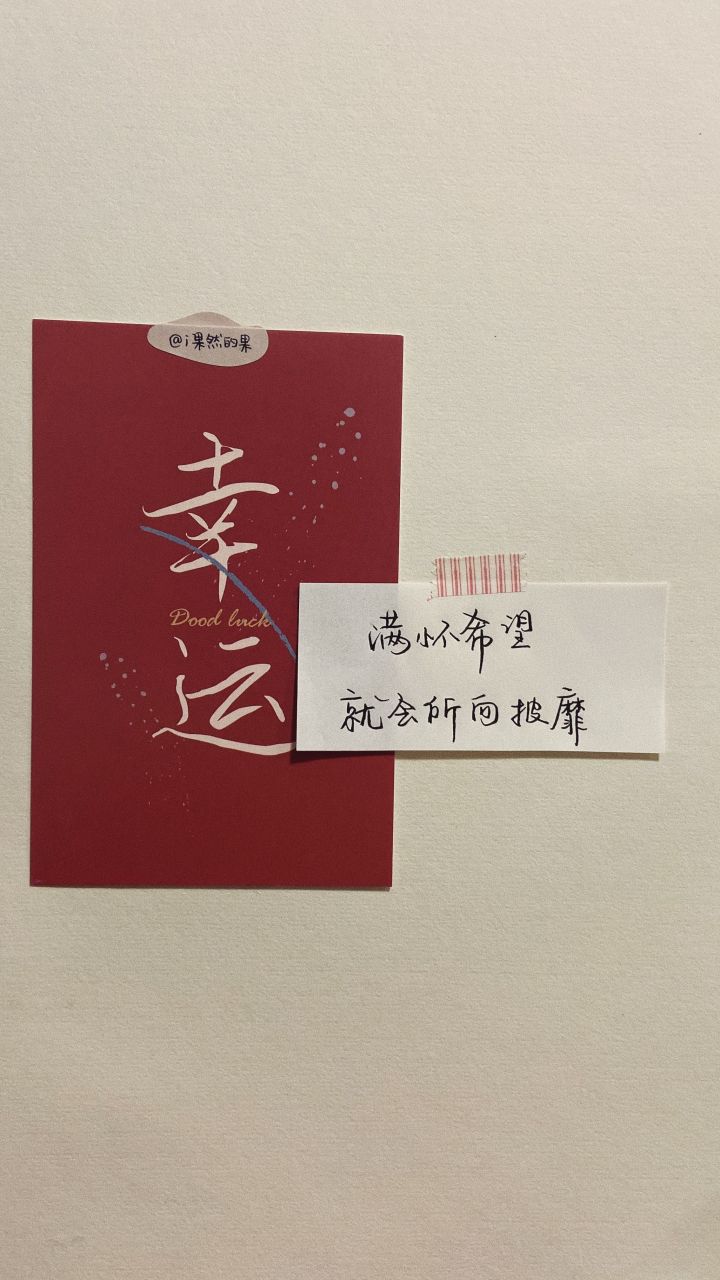 @i果然的果
幸
Dood luck
运
满怀希望
就会所向披靡